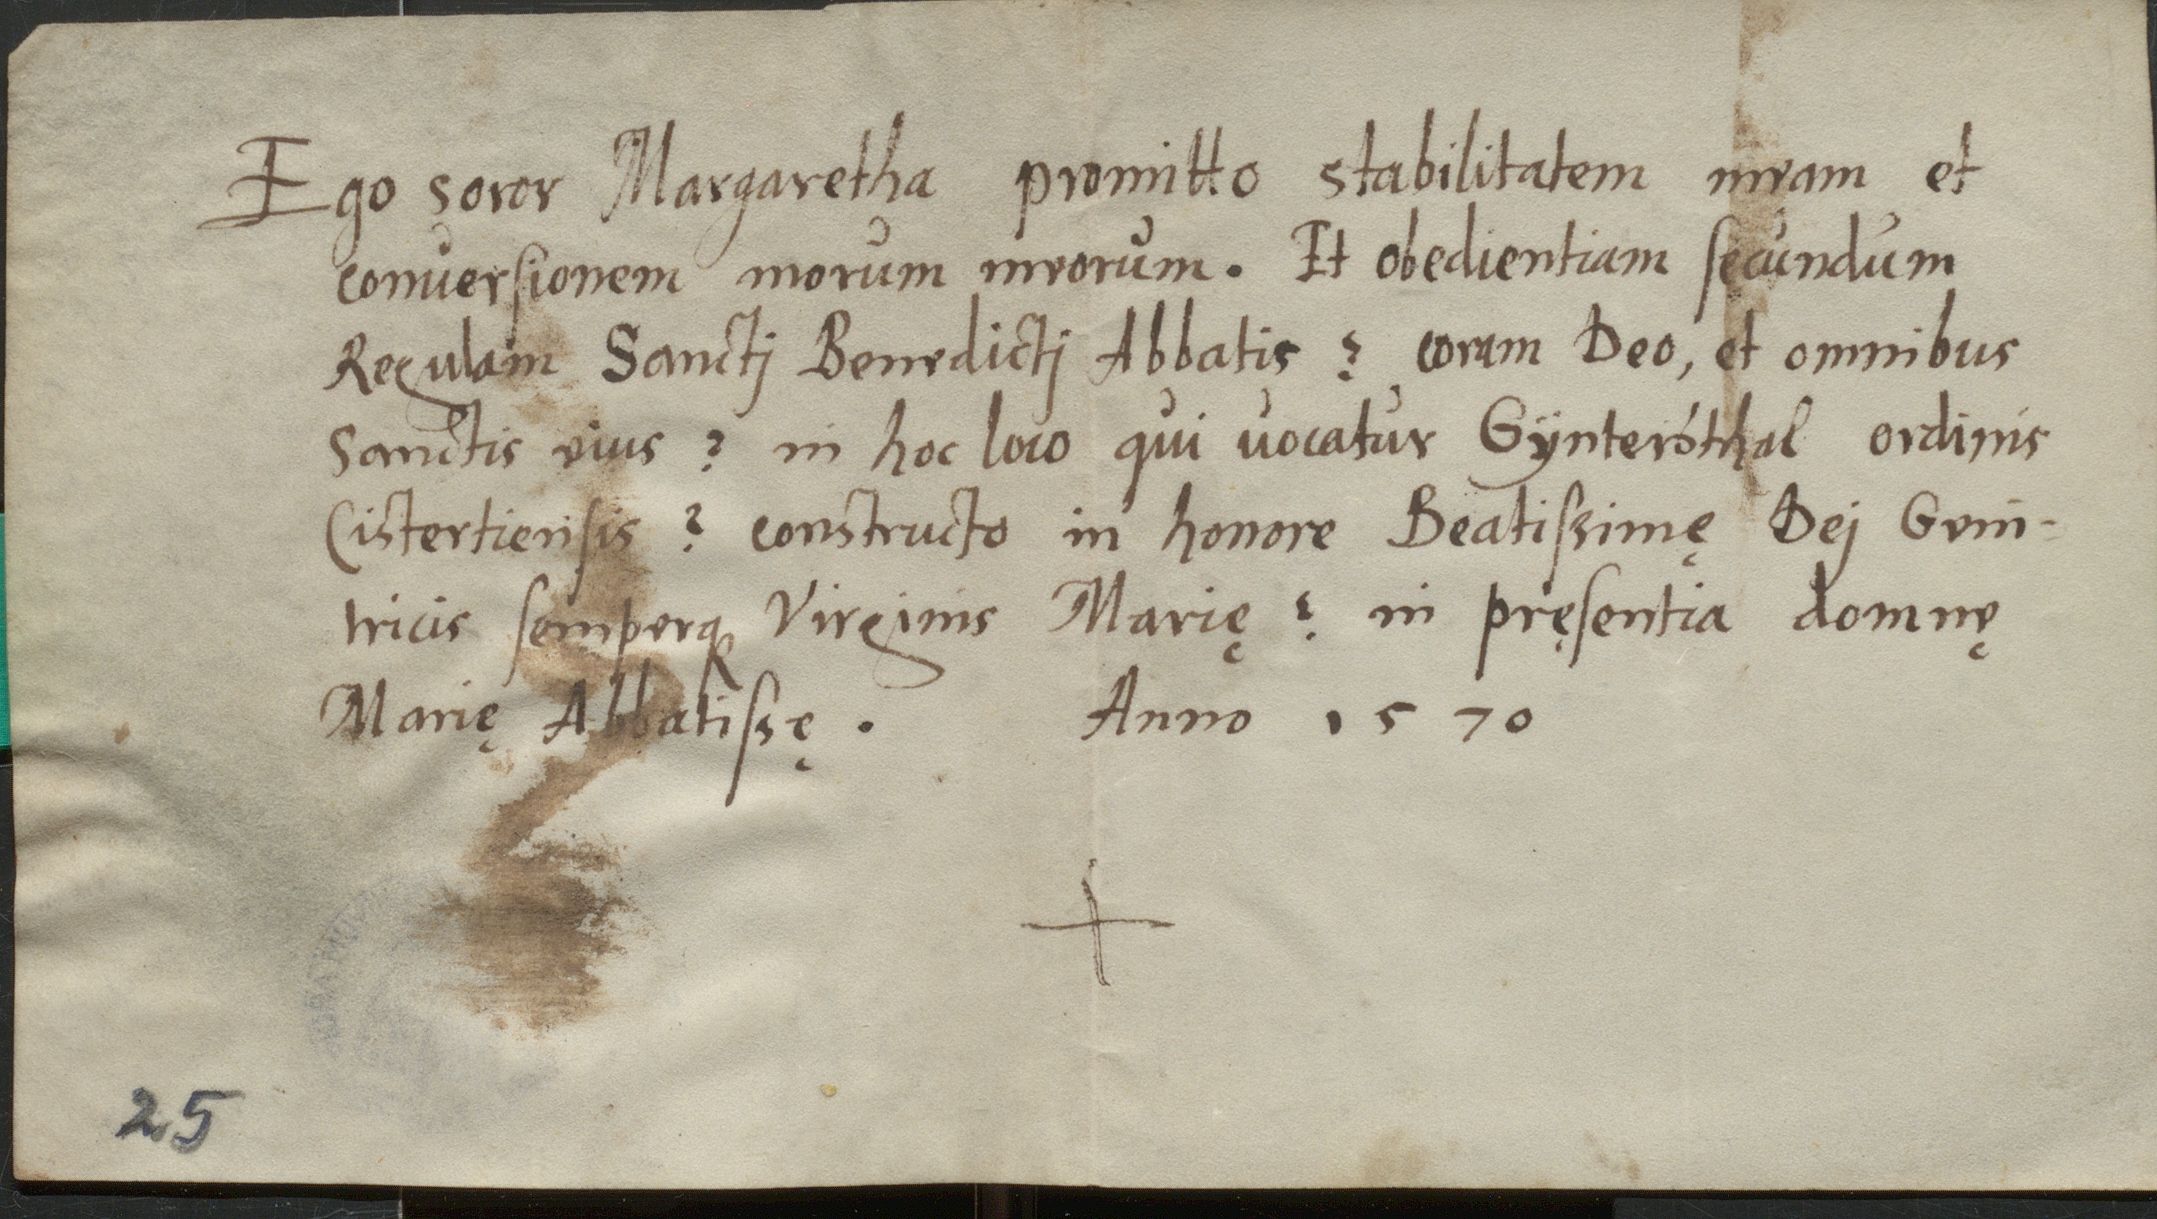 Ego soror Margaretha promitto stabilitatem meam et
conuersionem morum meorum. Et obedientiam secundum
Regulam Sanctj Benedictj Abbatis ? coram Deo, et omnibus
Sanctis eius ? in hoc loco qui uocatur Gÿnterßthal ordinis
Cistertiensis ? constructo in honore Beatissimę Dej Geni-
tricis semperq Virginis Marię ? in pręsentia domnę
Marię Abbatissę . Anno 1570
25